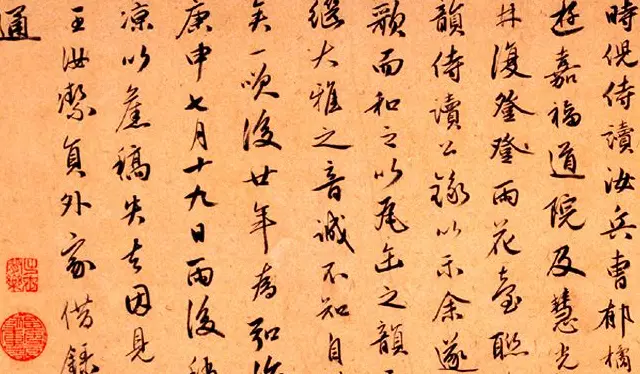 時倪侍讀汝兵曹郁橘
遊嘉福道院及慧光
井復登登雨花臺聯
韻侍讀公錄以示余遂
歌而和之以瓦缶之韻
繼大雅之音誠不知自
矣一笑後廿年為弘治
庚申七月十九日雨後
凉以舊稿失去因見
王汝潔員外家借録
通